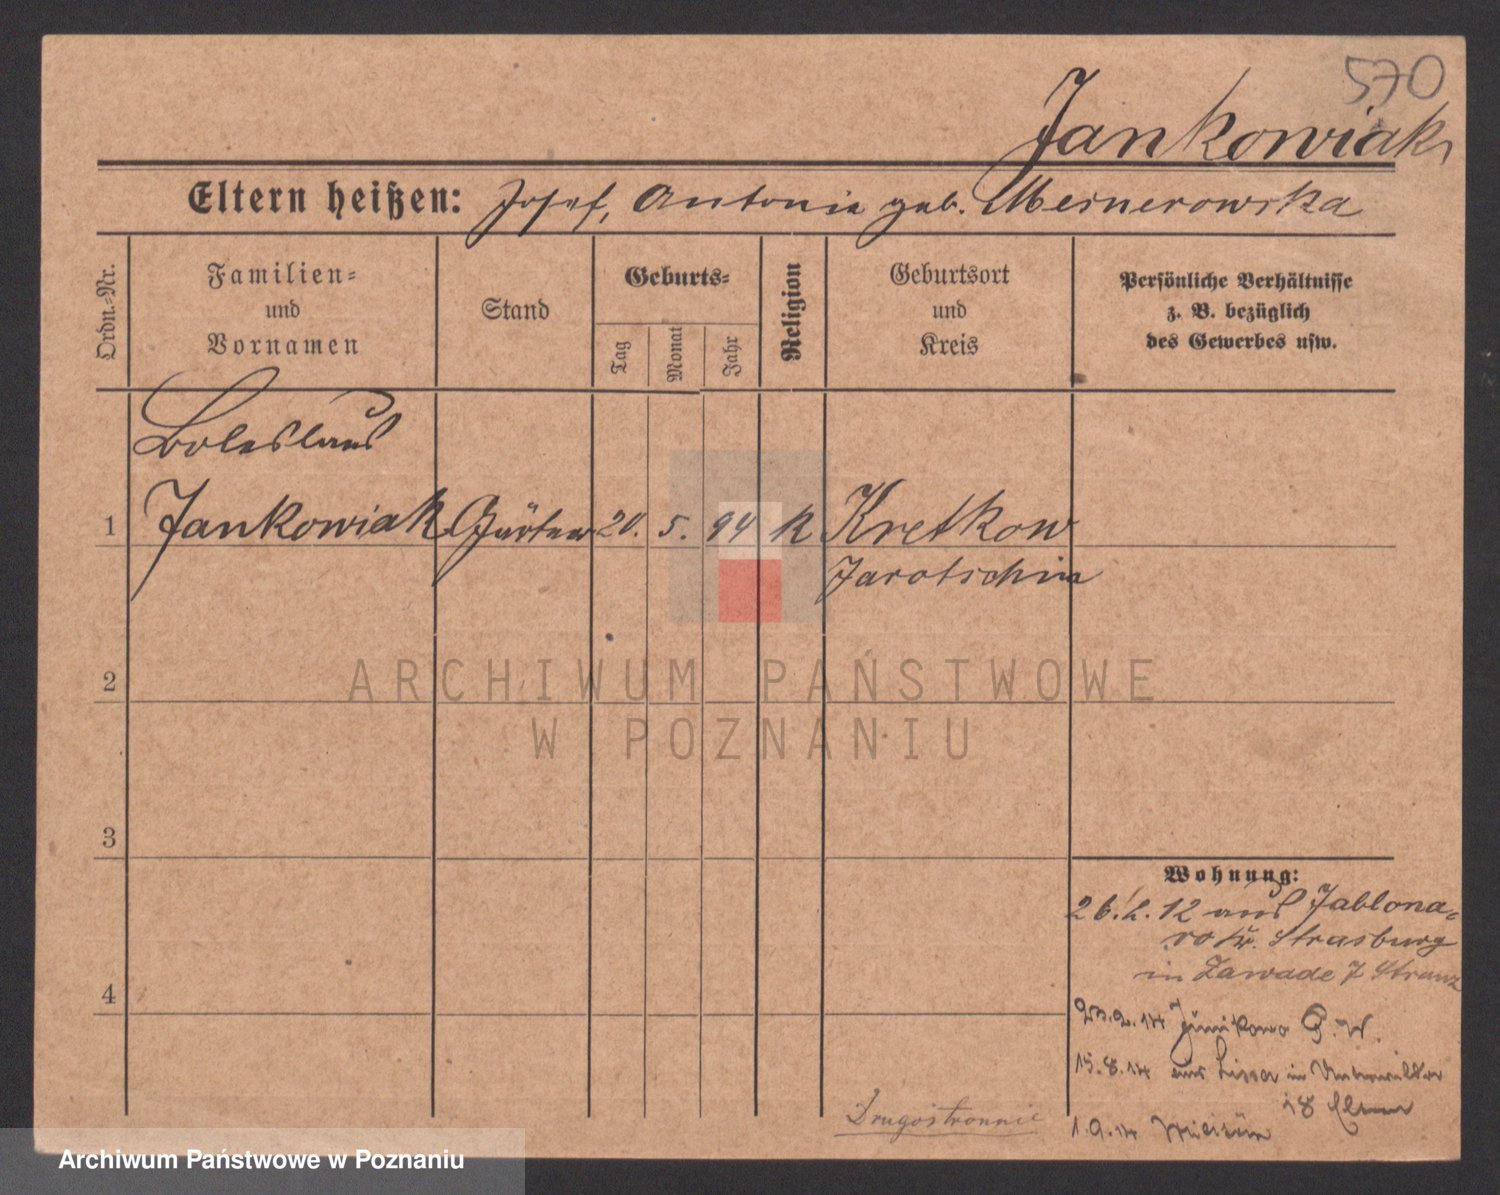 570
Jankowiak
Eltern heißen: Josef, Antonie geb. Mesnerowska
Ordn.-Nr.
Familien-
und
Vornamen
Stand
Geburts-
Tag
Monat
Jahr
Religion
Geburtsort
und
Kreis
Persönliche Verhältnisse
z. B. bezüglich
des Gewerbes usw.
Boleslaus
1 Jankowiak Gärtner 20. 5. 94 K Kretkow
Jarotschin
2
3
4
ARCHIWUM PAŃSTWOWE
W POZNANIU
Wohnung:
26. 2. 12 aus Jablona-
wo Kr. Strasburg
in Zawade 7
23.2.14 Junikowo P. W.
15.8.14 aus Lissa in
18 Eltern
1.9.14 Militär
Drugostronnie
Archiwum Państwowe w Poznaniu